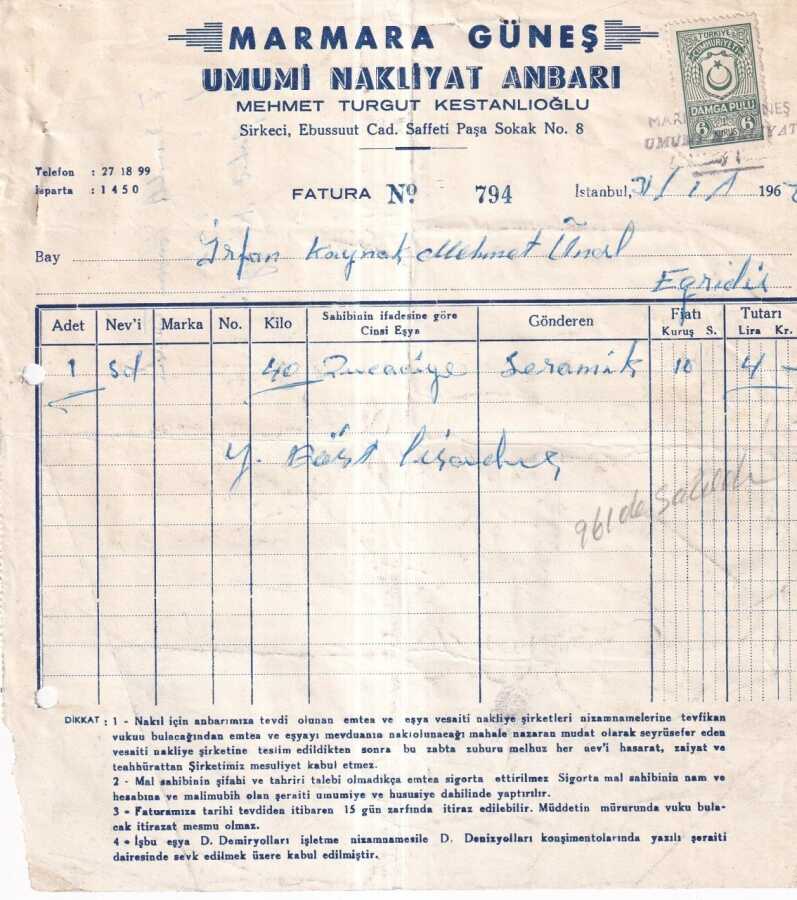 MARMARA GÜNEŞ
UMUMİ NAKLİYAT ANBARI
MEHMET TURGUT KESTANLIOĞLU
Sirkeci, Ebussuut Cad. Saffeti Paşa Sokak No. 8
TÜRKİYE CUMHURİYETİ
DAMGA PULU
6 KURUŞ 6
Telefon : 27 18 99
Isparta : 1450
FATURA No 794 İstanbul, 196
Bay İrfan Kaynak Mehmet Ünal
Eğridir
Adet Nev'i Marka No. Kilo Sahibinin ifadesine göre Cinsi Eşya Gönderen Fiatı Kuruş S. Tutarı Lira Kr.
1 Sd 40 Zucaciye Seramik 10 4 -
961 de
DİKKAT : 1 - Nakıl için anbarımıza tevdi olunan emtea ve eşya vesaiti nakliye şirketleri nizamnamelerine tevfikan
vukuu bulacağından emtea ve eşyayı mevduanın nakıolunacağı mahale nazaran mudat olarak seyrüsefer eden
vesaiti nakliye şirketine teslim edildikten sonra bu zabta zuhuru melhuz her nev'i hasarat, zaiyat ve
teahhürattan Şirketimiz mesuliyet kabul etmez.
2 - Mal sahibinin şifahi ve tahriri talebi olmadıkça emtea sigorta ettirilmez Sigorta mal sahibinin nam ve
hesabına ve malimubih olan şeraiti umumiye ve hususiye dahilinde yaptırılır.
3 - Faturamıza tarihi tevdiden itibaren 15 gün zarfında itiraz edilebilir. Müddetin mürurunda vuku bula-
cak itirazat mesmu olmaz.
4 - İşbu eşya D. Demiryolları işletme nizamnamesile D. Denizyolları konşimentolarında yazılı şeraiti
dairesinde sevk edilmek üzere kabul edilmiştir.